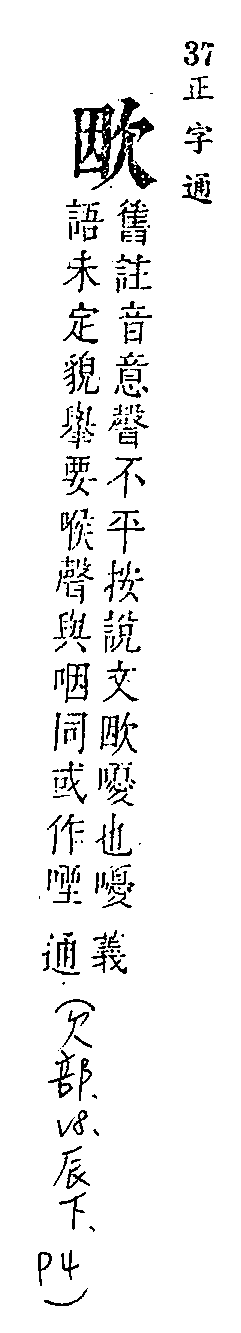 37 正字通
欭
舊註音意聲不平按說文欭嚘也嚘義
語未定貌舉要喉聲與咽同或作㖶通
(欠部、V8、辰下、P4)